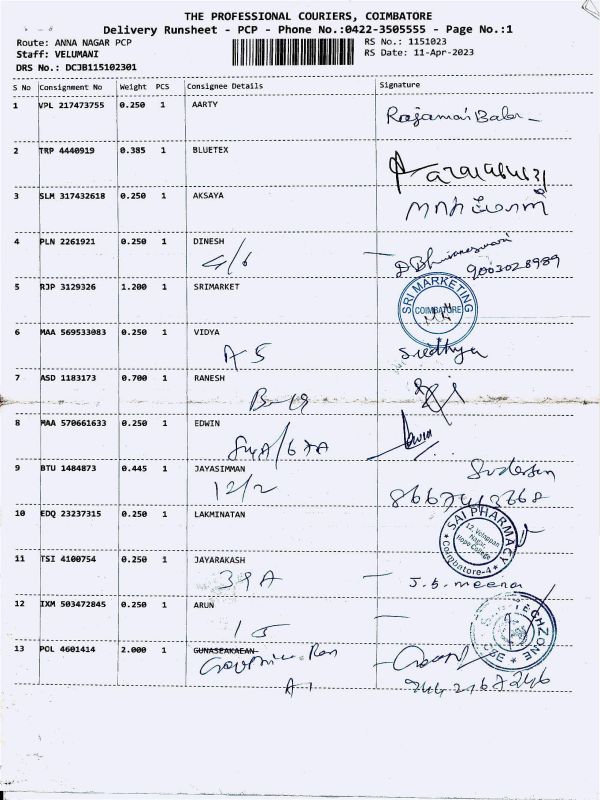 THE PROFESSIONAL COURIERS, COIMBATORE
Delivery Runsheet - PCP - Phone No.:0422-3505555 - Page No.:1
Route: ANNA NAGAR PCP
Staff: VELUMANI
DRS No.: DCJB115102301
RS No.: 1151023
RS Date: 11-Apr-2023
S No Consignment No Weight PCS Consignee Details Signature
1 VPL 217473755 0.250 1 AARTY
2 TRP 4440919 0.385 1 BLUETEX
3 SLM 317432618 0.250 1 AKSAYA
4 PLN 2261921 0.250 1 DINESH
4/6 9003028989
5 RJP 3129326 1.200 1 SRIMARKET
SRI MARKETING
COIMBATORE
6 MAA 569533083 0.250 1 VIDYA
A 5
7 ASD 1183173 0.700 1 RANESH
8 MAA 570661633 0.250 1 EDWIN
9 BTU 1484873 0.445 1 JAYASIMMAN
12/2
10 EDQ 23237315 0.250 1 LAKMINATAN
SAI PHARMACY
Hope College
Coimbatore-4
11 TSI 4100754 0.250 1 JAYARAKASH
39A J.S. meena
12 IXM 503472845 0.250 1 ARUN
15
13 POL 4601414 2.000 1 GUNASEAKAEAN